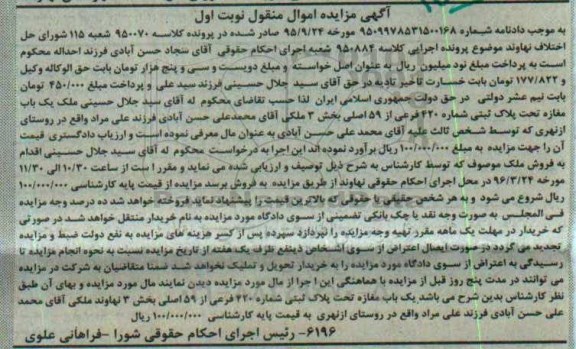 آگهی مزایده اموال منقول نوبت اول
به موجب دادنامه شماره ۹۵۰۹۹۷۸۵۳۱۵۰۰۱۶۸ مورخه ۹۵/۹/۲۴ صادر شده در پرونده کلاسه ۹۵۰۰۷۰ شعبه ۱۱۵ شورای حل
اختلاف نهاوند موضوع پرونده اجرایی کلاسه ۹۵۰۸۸۴ شعبه اجرای احکام حقوقی آقای سجاد حسن آبادی فرزند احداله محکوم
است به پرداخت مبلغ نود میلیون ریال به عنوان اصل خواسته و مبلغ دویست و سی و پنج هزار تومان بابت حق الوکاله وکیل
و ۱۷۷/۸۲۲ تومان بابت خسارت تأخیر تادیه در حق آقای سید جلال حسینی فرزند سید علی و پرداخت مبلغ ۴۵۰/۰۰۰ تومان
بابت نیم عشر دولتی در حق دولت جمهوری اسلامی ایران لذا حسب تقاضای محکوم له آقای سید جلال حسینی ملک یک باب
مغازه تحت پلاک ثبتی شماره ۴۲۰ فرعی از ۵۹ اصلی بخش ۳ ملکی آقای محمدعلی حسن آبادی فرزند علی مراد واقع در روستای
ازنهری که توسط شخص ثالث علیه آقای محمد علی حسن آبادی به عنوان مال معرفی نموده است و ارزیاب دادگستری قیمت
آن را جهت مزایده به مبلغ ۱۰۰/۰۰۰/۰۰۰ ریال برآورد نموده اند این اجرا به درخواست محکوم له آقای سید جلال حسینی اقدام
به فروش ملک موصوف که توسط کارشناس به شرح ذیل توصیف و ارزیابی شده می نماید و مقرر است از ساعت ۱۰/۳۰ الی ۱۱/۳۰
مورخه ۹۶/۳/۲۴ در محل اجرای احکام حقوقی نهاوند از طریق مزایده به فروش برسد مزایده از قیمت پایه کارشناسی ۱۰۰/۰۰۰/۰۰۰
ریال شروع می شود و به هر شخص حقیقی یا حقوقی که بالاترین قیمت را پیشنهاد نماید فروخته خواهد شد ده درصد وجه مزایده
فی المجلس به صورت وجه نقد یا چک بانکی تضمینی از سوی دادگاه مورد مزایده به نام خریدار منتقل خواهد شد در صورتی
که خریدار در مهلت یک ماهه مقرر تهیه وجه مزایده را نپردازد سپرده پس از کسر هزینه های مزایده به نفع دولت ضبط و مزایده
تجدید می گردد در صورت ایصال اعتراض از سوی اشخاص ذینفع ظرف یک هفته از تاریخ مزایده نسبت به نحوه انجام مزایده تا
رسیدگی به اعتراض از سوی دادگاه مورد مزایده را به خریدار تحویل و تملیک نخواهد شد ضمنا متقاضیان به شرکت در مزایده
می توانند در مدت پنج روز قبل از مزایده با هماهنگی این اجرا از مال مورد مزایده دیدن نمایند مال مورد مزایده و بهای آن طبق
نظر کارشناس بدین شرح می باشد یک باب مغازه تحت پلاک ثبتی شماره ۴۲۰ فرعی از ۵۹ اصلی بخش ۳ نهاوند ملکی آقای محمد
علی حسن آبادی فرزند علی مراد واقع در روستای ازنهری به قیمت پایه کارشناسی ۱۰۰/۰۰۰/۰۰۰ ریال
۶۱۹۶- رئیس اجرای احکام حقوقی شورا -فراهانی علوی